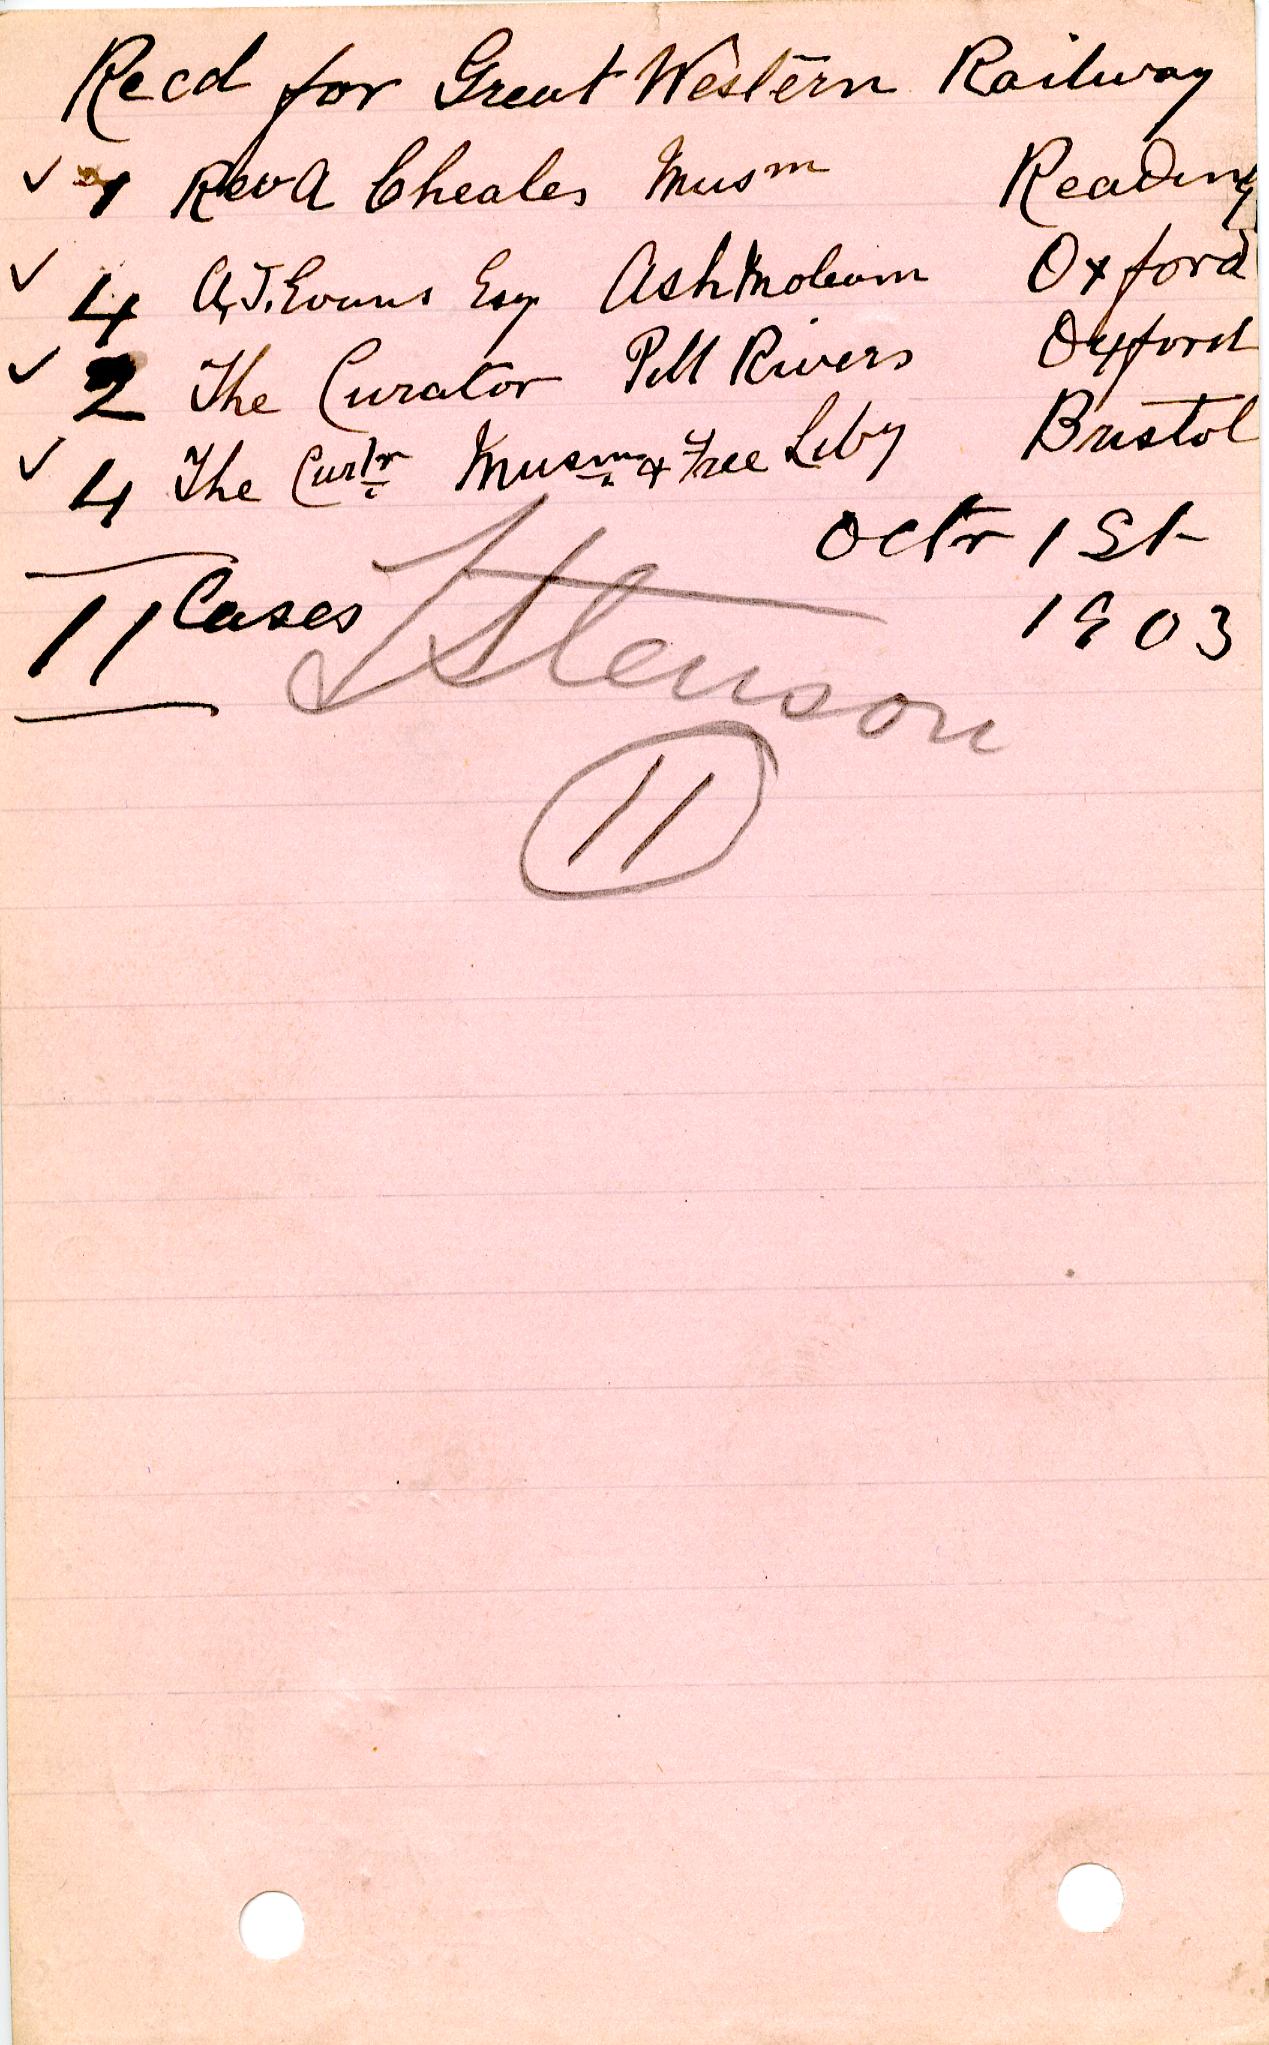 Recd for Great Western Railway
✓ 1 Rev A Cheales Musm Reading
✓ 4 A.J. Evans Esq Ashmoleam Oxford
✓ 2 The Curator Pitt Rivers Oxford
✓ 4 The Curtr Musm & Free Liby Bristol
Octr 1st
11 Cases 1903
Stenson
11